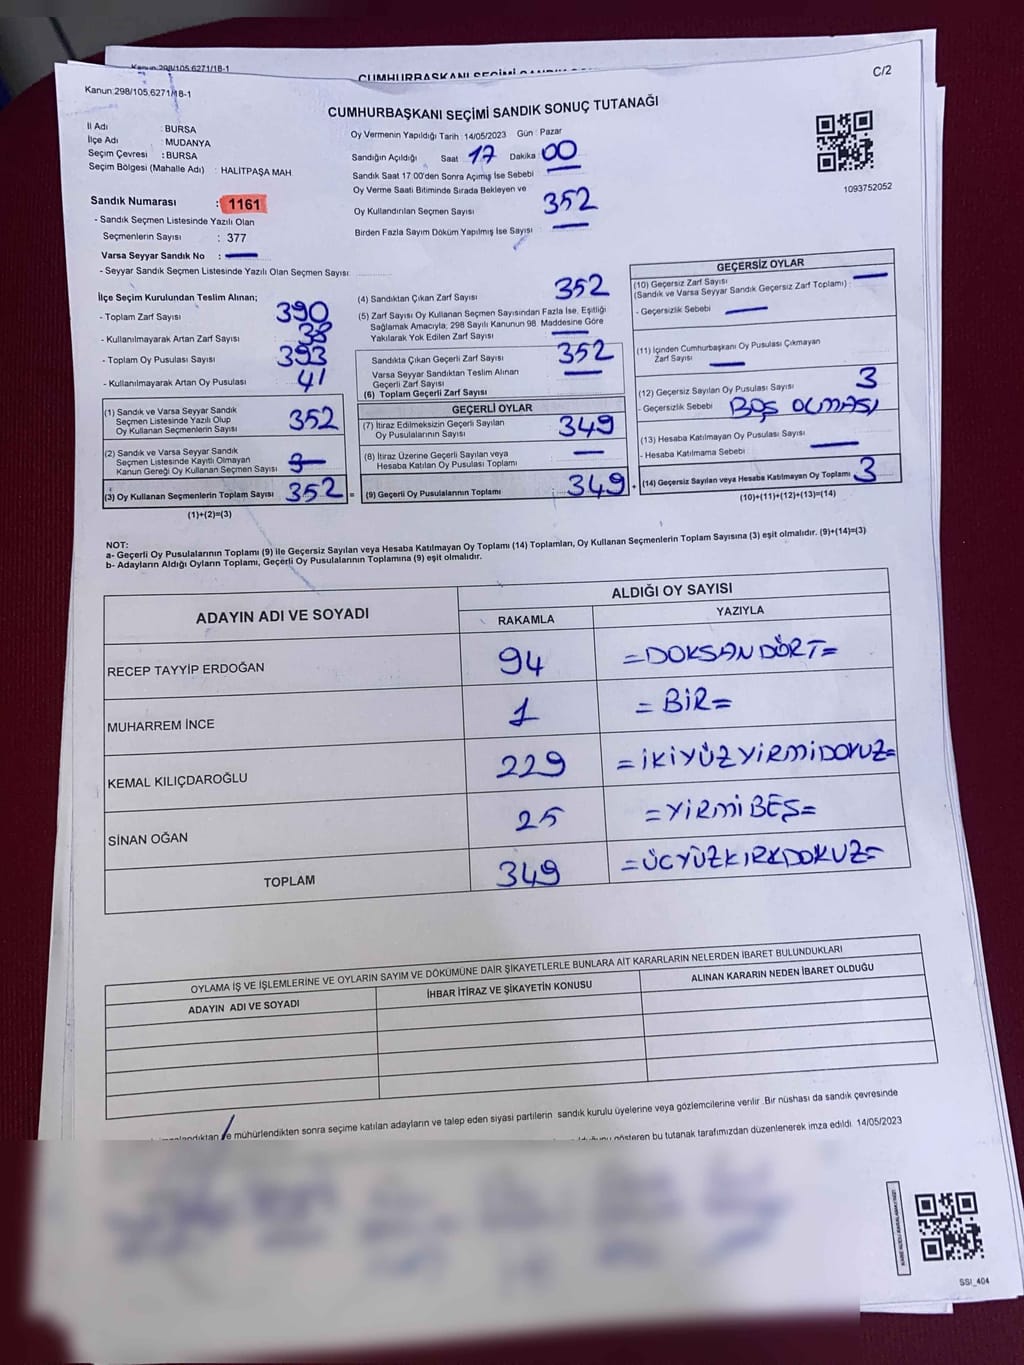 Kanun:298/105,6271/18-1
CUMHURBAŞKANI SEÇİMİ
Kanun:298/105,6271/18-1
C/2
CUMHURBAŞKANI SEÇİMİ SANDIK SONUÇ TUTANAĞI
İl Adı : BURSA
İlçe Adı : MUDANYA
Seçim Çevresi : BURSA
Seçim Bölgesi (Mahalle Adı) : HALİTPAŞA MAH.
Sandık Numarası : 1161
- Sandık Seçmen Listesinde Yazılı Olan
Seçmenlerin Sayısı : 377
Varsa Seyyar Sandık No : —
- Seyyar Sandık Seçmen Listesinde Yazılı Olan Seçmen Sayısı
Oy Vermenin Yapıldığı Tarih :14/05/2023 Gün : Pazar
Sandığın Açıldığı Saat 17 Dakika 00
Sandık Saat 17.00'den Sonra Açımış İse Sebebi —
Oy Verme Saati Bitiminde Sırada Bekleyen ve
Oy Kullandırılan Seçmen Sayısı 352
Birden Fazla Sayım Döküm Yapılmış İse Sayısı —
1093752052
İlçe Seçim Kurulundan Teslim Alınan;
- Toplam Zarf Sayısı 390
- Kullanılmayarak Artan Zarf Sayısı 38
- Toplam Oy Pusulası Sayısı 393
- Kullanılmayarak Artan Oy Pusulası 41
(1) Sandık ve Varsa Seyyar Sandık
Seçmen Listesinde Yazılı Olup
Oy Kullanan Seçmenlerin Sayısı 352
(2) Sandık ve Varsa Seyyar Sandık
Seçmen Listesinde Kayıtlı Olmayan
Kanun Gereği Oy Kullanan Seçmen Sayısı
(3) Oy Kullanan Seçmenlerin Toplam Sayısı 352 =
(1)+(2)=(3)
(4) Sandıktan Çıkan Zarf Sayısı 352
(5) Zarf Sayısı Oy Kullanan Seçmen Sayısından Fazla İse, Eşitliği
Sağlamak Amacıyla; 298 Sayılı Kanunun 98. Maddesine Göre
Yakılarak Yok Edilen Zarf Sayısı —
Sandıkta Çıkan Geçerli Zarf Sayısı 352
Varsa Seyyar Sandıktan Teslim Alınan
Geçerli Zarf Sayısı —
(6) Toplam Geçerli Zarf Sayısı
GEÇERLİ OYLAR
(7) İtiraz Edilmeksizin Geçerli Sayılan
Oy Pusulalarının Sayısı 349
(8) İtiraz Üzerine Geçerli Sayılan veya
Hesaba Katılan Oy Pusulası Toplamı —
(9) Geçerli Oy Pusulalarının Toplamı 349 +
GEÇERSİZ OYLAR
(10) Geçersiz Zarf Sayısı —
(Sandık ve Varsa Seyyar Sandık Geçersiz Zarf Toplamı) :
- Geçersizlik Sebebi —
(11) İçinden Cumhurbaşkanı Oy Pusulası Çıkmayan
Zarf Sayısı —
(12) Geçersiz Sayılan Oy Pusulası Sayısı 3
- Geçersizlik Sebebi BOŞ OLMASI
(13) Hesaba Katılmayan Oy Pusulası Sayısı —
- Hesaba Katılmama Sebebi
(14) Geçersiz Sayılan veya Hesaba Katılmayan Oy Toplamı 3
(10)+(11)+(12)+(13)=(14)
NOT:
a- Geçerli Oy Pusulalarının Toplamı (9) ile Geçersiz Sayılan veya Hesaba Katılmayan Oy Toplamı (14) Toplamları, Oy Kullanan Seçmenlerin Toplam Sayısına (3) eşit olmalıdır. (9)+(14)=(3)
b- Adayların Aldığı Oyların Toplamı, Geçerli Oy Pusulalarının Toplamına (9) eşit olmalıdır.
ADAYIN ADI VE SOYADI
ALDIĞI OY SAYISI
RAKAMLA YAZIYLA
RECEP TAYYİP ERDOĞAN 94 =DOKSANDÖRT=
MUHARREM İNCE 1 =BİR=
KEMAL KILIÇDAROĞLU 229 =İKİYÜZYİRMİDOKUZ=
SİNAN OĞAN 25 =YİRMİBEŞ=
TOPLAM 349 =ÜÇYÜZKIRKDOKUZ=
OYLAMA İŞ VE İŞLEMLERİNE VE OYLARIN SAYIM VE DÖKÜMÜNE DAİR ŞİKAYETLERLE BUNLARA AİT KARARLARIN NELERDEN İBARET BULUNDUKLARI
ADAYIN ADI VE SOYADI İHBAR İTİRAZ VE ŞİKAYETİN KONUSU ALINAN KARARIN NEDEN İBARET OLDUĞU
ve mühürlendikten sonra seçime katılan adayların ve talep eden siyasi partilerin sandık kurulu üyelerine veya gözlemcilerine verilir .Bir nüshası da sandık çevresinde
gösteren bu tutanak tarafımızdan düzenlenerek imza edildi. 14/05/2023
SSI_404